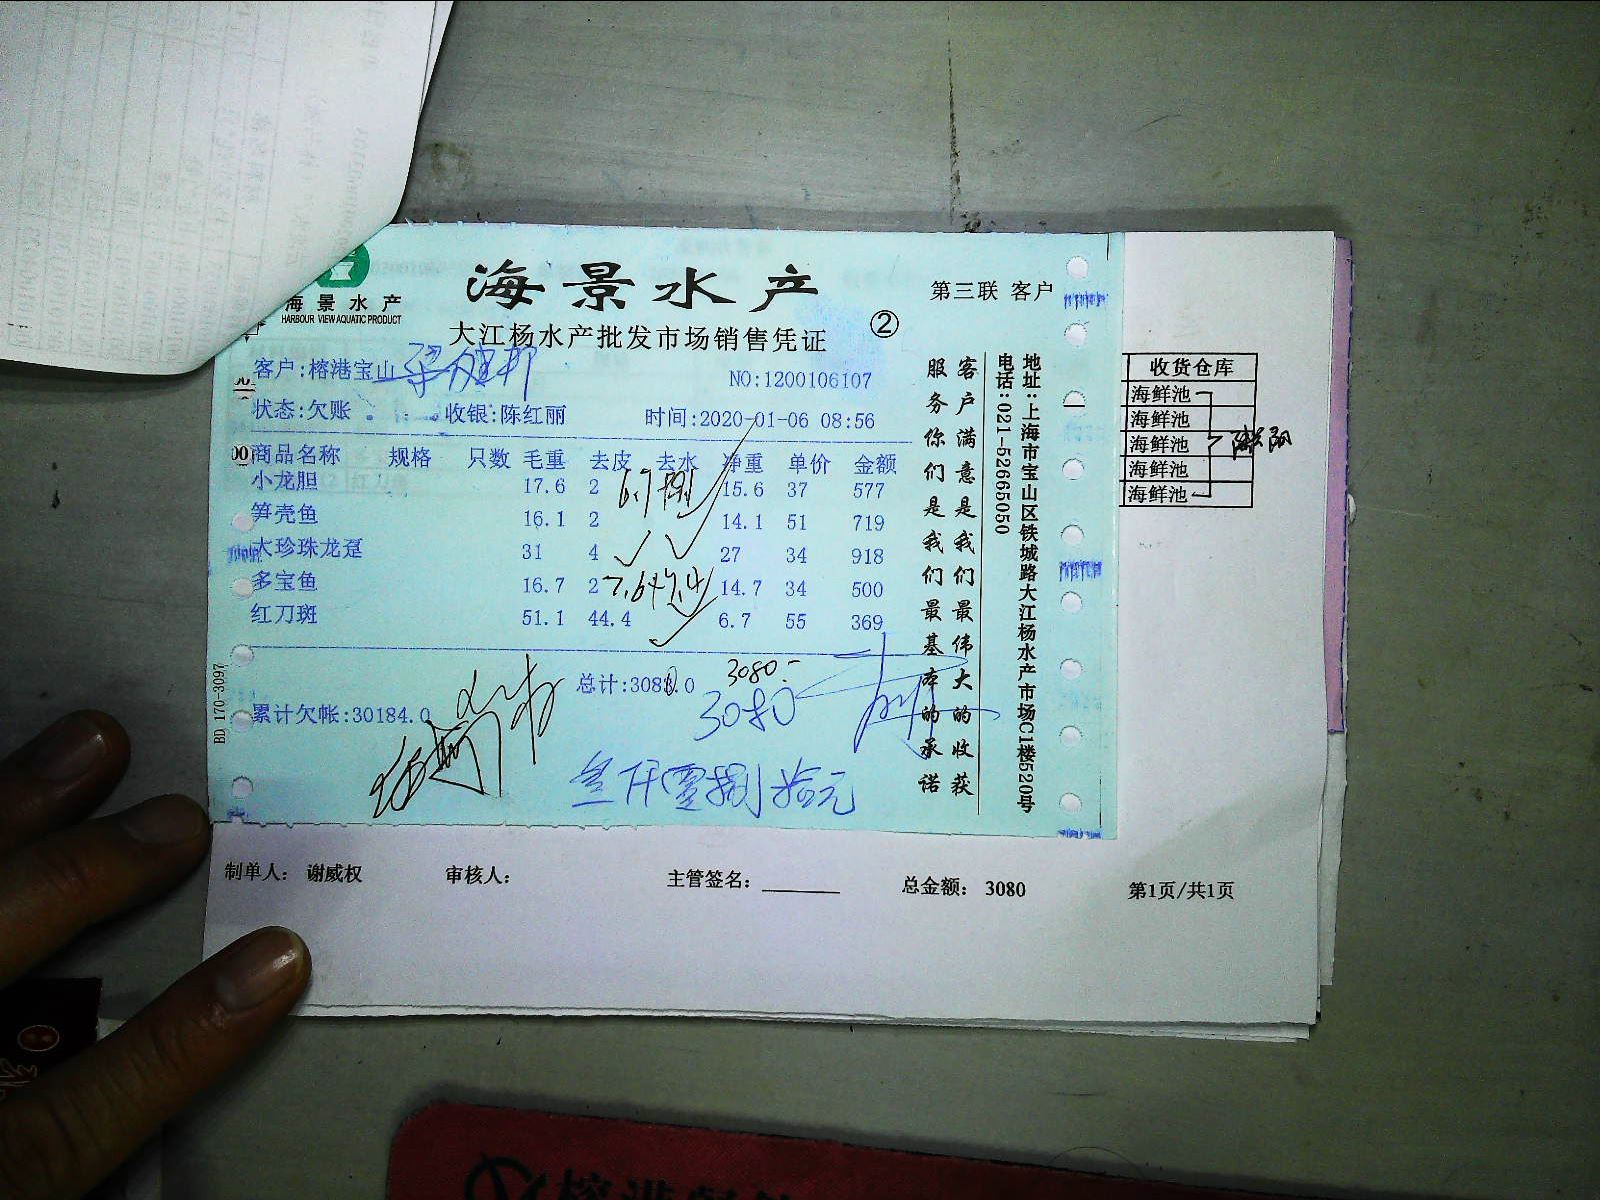 海景水产
HARBOUR VIEW AQUATIC PRODUCT
海景水产
第三联 客户
大江杨水产批发市场销售凭证
②
客户:榕港宝山
NO:1200106107
状态:欠账 收银:陈红丽 时间:2020-01-06 08:56
商品名称 规格 只数 毛重 去皮 去水 净重 单价 金额
小龙胆 17.6 2 15.6 37 577
笋壳鱼 16.1 2 14.1 51 719
大珍珠龙趸 31 4 27 34 918
多宝鱼 16.7 2 7.6+7.4 14.7 34 500
红刀斑 51.1 44.4 6.7 55 369
总计:3083.0 3080.-
累计欠帐:30184.0
3080
叁仟零捌拾元
客户满意是我们最伟大的收获
服务你们是我们最基本的承诺
地址:上海市宝山区铁城路大江杨水产市场C1楼520号
电话:021-52665050
BD 170-3097
收货仓库
海鲜池
海鲜池
海鲜池
海鲜池
海鲜池
制单人: 谢威权 审核人: 主管签名: 总金额: 3080 第1页/共1页